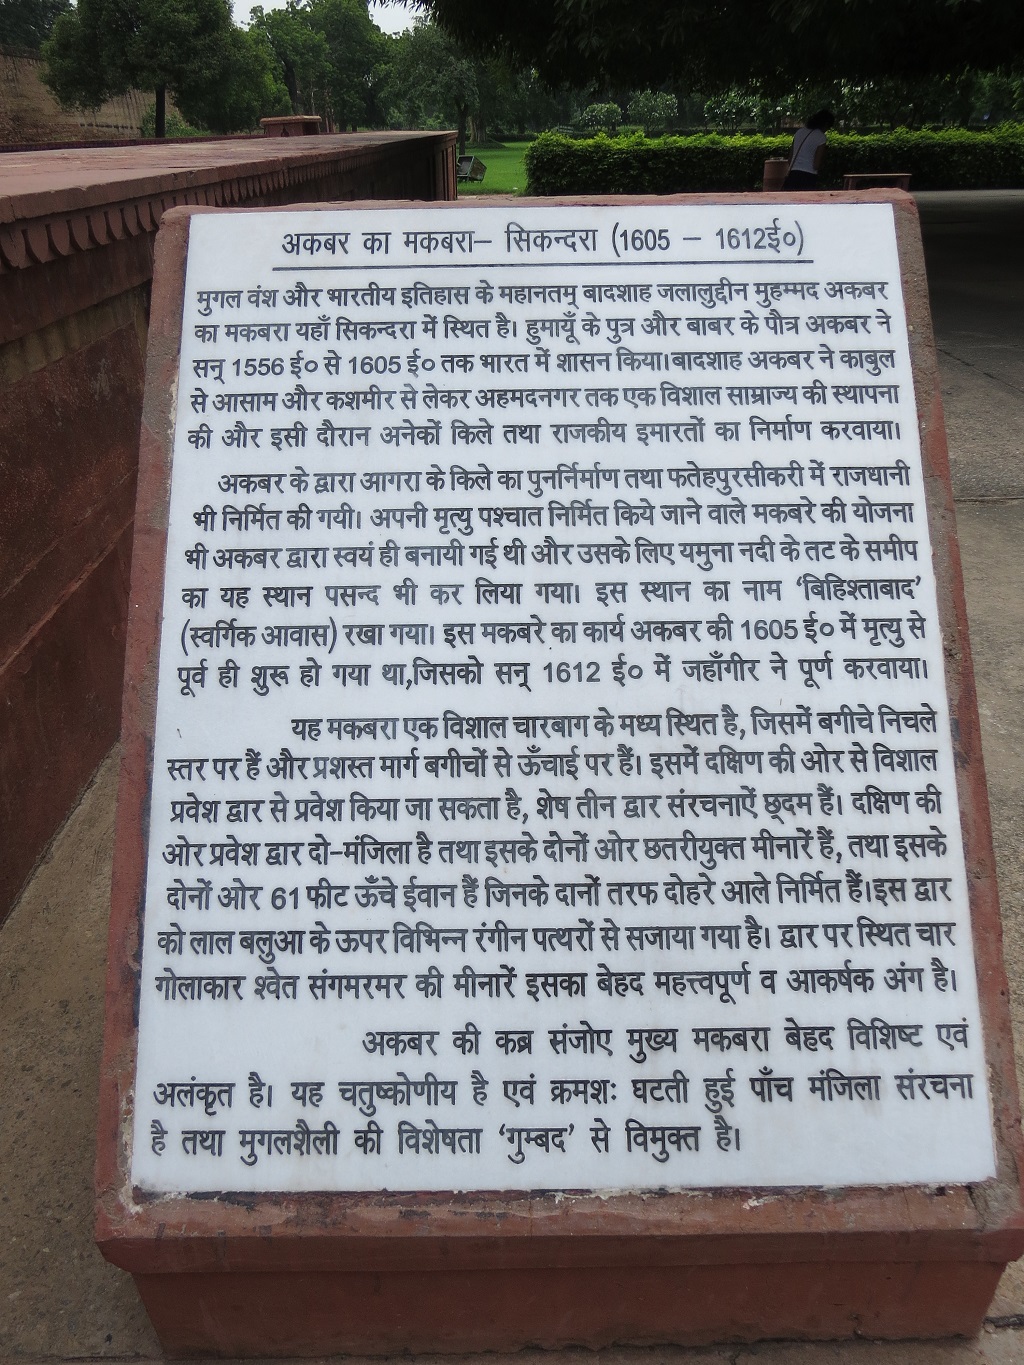 अकबर का मकबरा– सिकन्दरा (1605 – 1612ई०)
मुगल वंश और भारतीय इतिहास के महानतम् बादशाह जलालुद्दीन मुहम्मद अकबर
का मकबरा यहाँ सिकन्दरा में स्थित है। हुमायूँ के पुत्र और बाबर के पौत्र अकबर ने
सन् 1556 ई० से 1605 ई० तक भारत में शासन किया।बादशाह अकबर ने काबुल
से आसाम और कशमीर से लेकर अहमदनगर तक एक विशाल साम्राज्य की स्थापना
की और इसी दौरान अनेकों किले तथा राजकीय इमारतों का निर्माण करवाया।
अकबर के द्वारा आगरा के किले का पुनर्निर्माण तथा फतेहपुरसीकरी में राजधानी
भी निर्मित की गयी। अपनी मृत्यु पश्चात निर्मित किये जाने वाले मकबरे की योजना
भी अकबर द्वारा स्वयं ही बनायी गई थी और उसके लिए यमुना नदी के तट के समीप
का यह स्थान पसन्द भी कर लिया गया। इस स्थान का नाम ‘बिहिश्ताबाद’
(स्वर्गिक आवास) रखा गया। इस मकबरे का कार्य अकबर की 1605 ई० में मृत्यु से
पूर्व ही शुरू हो गया था,जिसको सन् 1612 ई० में जहाँगीर ने पूर्ण करवाया।
यह मकबरा एक विशाल चारबाग के मध्य स्थित है, जिसमें बगीचे निचले
स्तर पर हैं और प्रशस्त मार्ग बगीचों से ऊँचाई पर हैं। इसमें दक्षिण की ओर से विशाल
प्रवेश द्वार से प्रवेश किया जा सकता है, शेष तीन द्वार संरचनाऐं छ्दम हैं। दक्षिण की
ओर प्रवेश द्वार दो-मंजिला है तथा इसके दोनों ओर छतरीयुक्त मीनारें हैं, तथा इसके
दोनों ओर 61 फीट ऊँचे ईवान हैं जिनके दानों तरफ दोहरे आले निर्मित हैं।इस द्वार
को लाल बलुआ के ऊपर विभिन्न रंगीन पत्थरों से सजाया गया है। द्वार पर स्थित चार
गोलाकार श्वेत संगमरमर की मीनारें इसका बेहद महत्त्वपूर्ण व आकर्षक अंग है।
अकबर की कब्र संजोए मुख्य मकबरा बेहद विशिष्ट एवं
अलंकृत है। यह चतुष्कोणीय है एवं क्रमशः घटती हुई पाँच मंजिला संरचना
है तथा मुगलशैली की विशेषता ‘गुम्बद’ से विमुक्त है।